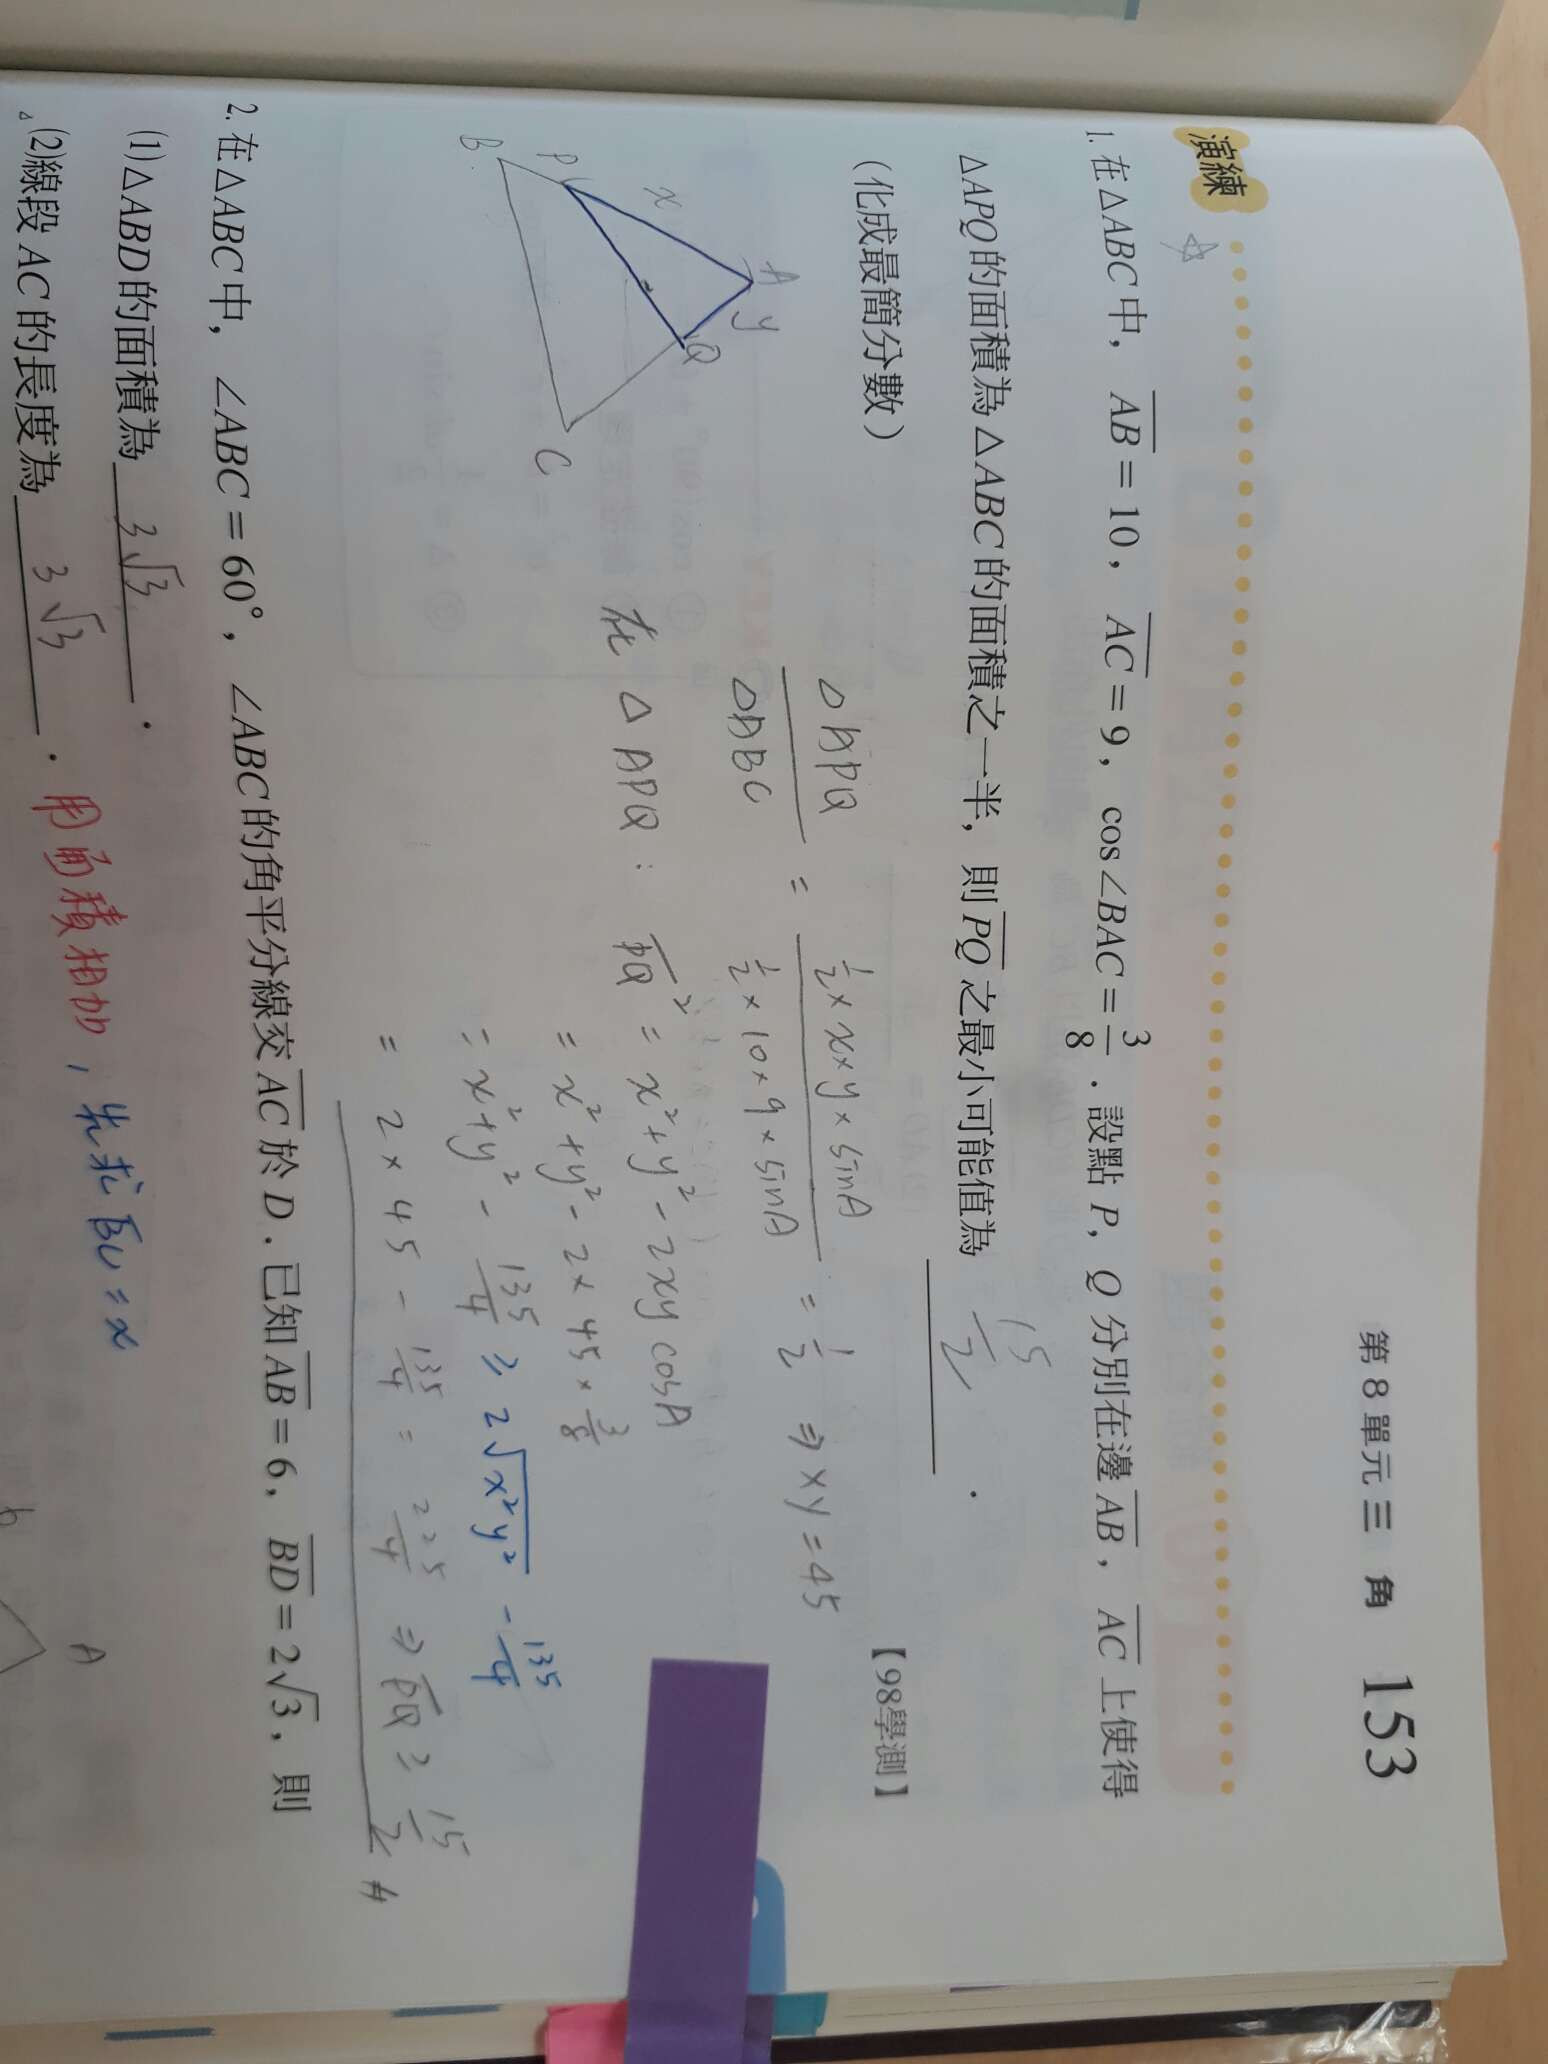 第8單元 三 角 153
演練
☆
1. 在△ABC中，AB=10，AC=9，cos∠BAC=3/8．設點P，Q分別在邊AB，AC上使得
△APQ的面積為△ABC的面積之一半，則PQ之最小可能值為 15/2 ．
（化成最簡分數） 【98學測】
A
x
y
P
Q
B
C
△APQ/△ABC = (½×x×y×sinA)/(½×10×9×sinA) = ½ ⇒ xy=45
在△APQ： PQ² = x²+y²-2xy cosA
= x²+y²-2×45×3/8
= x²+y²-135/4 ≥ 2√x²y² - 135/4
= 2×45 - 135/4 = 225/4 ⇒ PQ ≥ 15/2 #
2. 在△ABC中，∠ABC=60°，∠ABC的角平分線交AC於D．已知AB=6，BD=2√3，則
(1)△ABD的面積為 3√3 ．
△(2)線段AC的長度為 3√3 ．用面積相加，先求BC=x
A